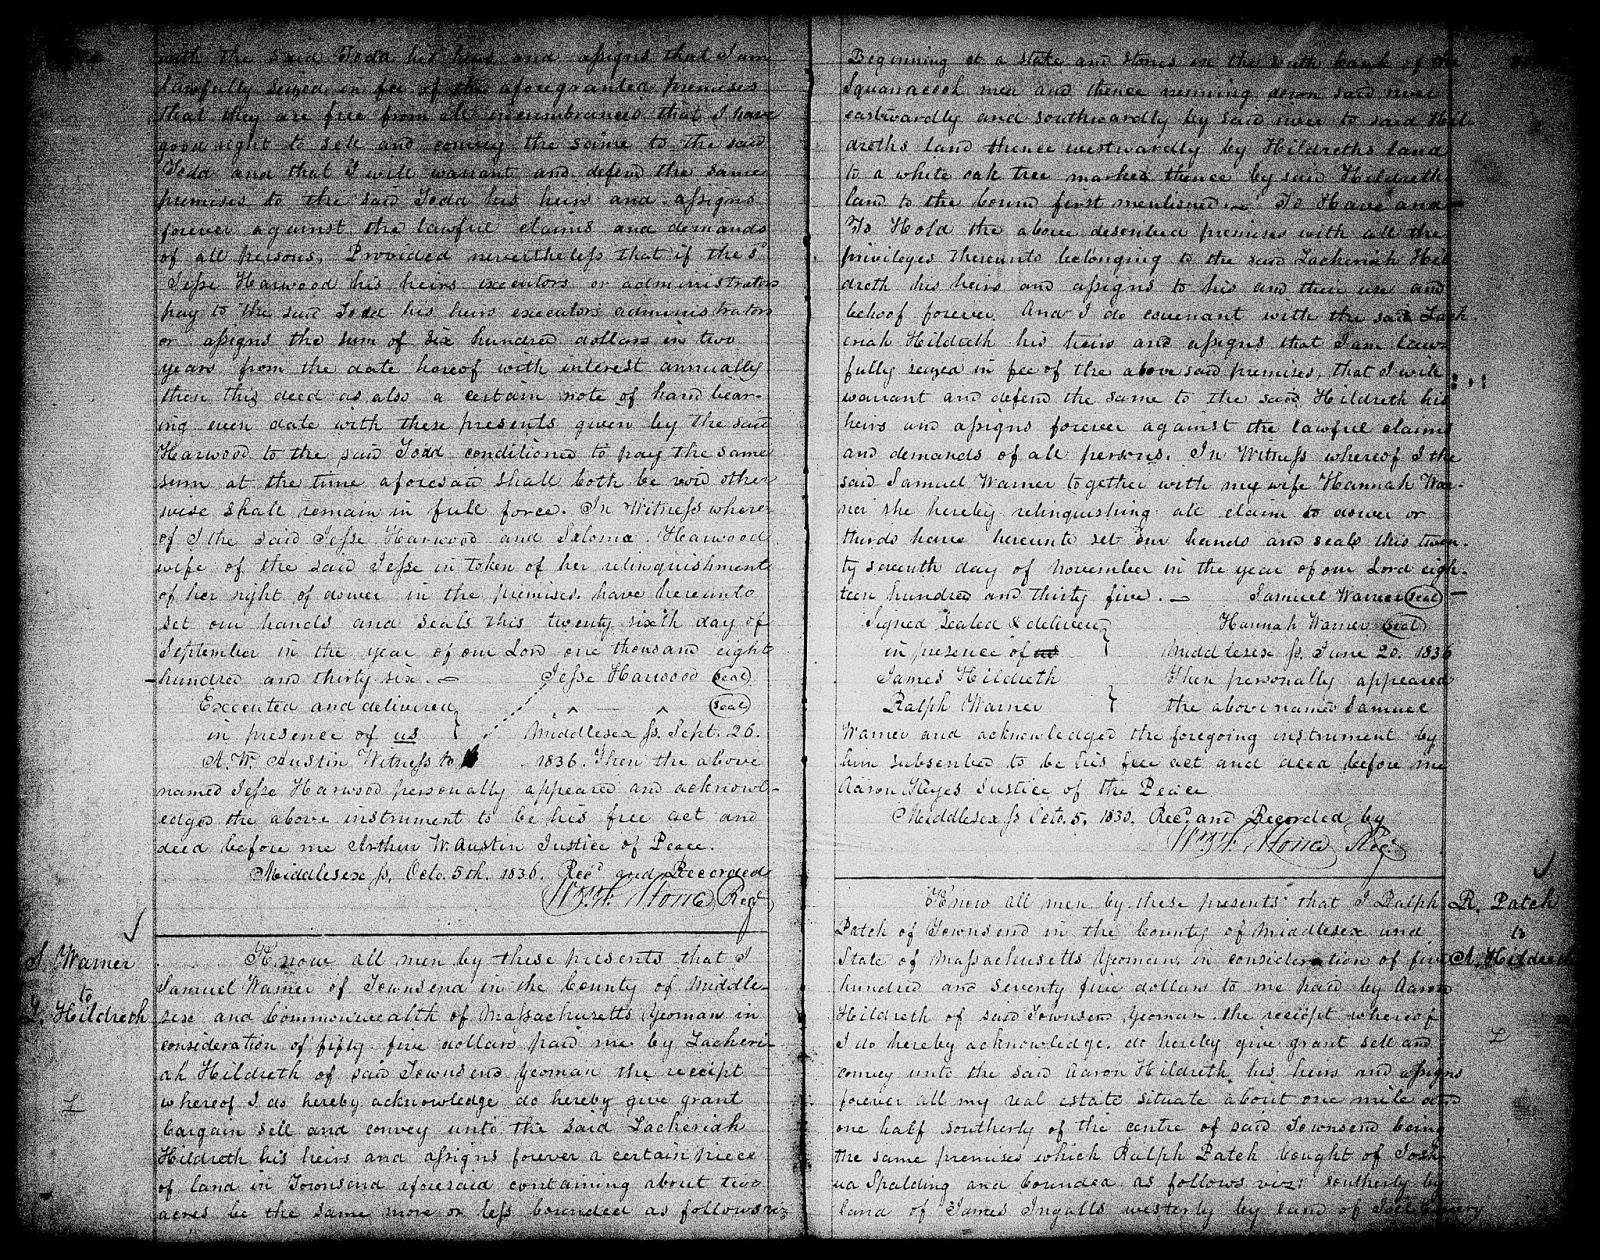 with the said Todd his heirs and assigns that I am
lawfully seized in fee of the aforegranted premises
that they are free from all incumbrances that I have
good right to sell and convey the same to the said
Todd and that I will warrant and defend the same
premises to the said Todd his heirs and assigns
forever against the lawful claims and demands
of all persons, Provided nevertheless that if the sd
Jesse Harwood his heirs executors or administrators
pay to the said Todd his heirs executors administrators
or assigns the sum of six hundred dollars in two
years from the date hereof with interest annually
then this deed as also a certain note of hand bear-
ing even date with these presents given by the said
Harwood to the said Todd conditioned to pay the same
sum at the time aforesaid shall both be void other
wise shall remain in full force. In Witness where
of I the said Jesse Harwood and Saloma Harwood
wife of the said Jesse in token of her relinquishment
of her right of dower in the premises have hereunto
set our hands and seals this twenty sixth day of
September in the year of our Lord one thousand eight
hundred and thirty six. Jesse Harwood (seal)
Executed and delivered (seal)
in presence of us Middlesex ss. Sept. 26.
A. W. Austin Witness to 1836. Then the above
named Jesse Harwood personally appeared and acknowl-
edged the above instrument to be his free act and
deed before me Arthur W. Austin Justice of Peace.
Middlesex ss. Octo. 5th. 1836. Recd and Recorded
Wm F. Stone Regr
S. Warner
to
Z. Hildreth
L
Know all men by these presents that I
Samuel Warner of Townsend in the County of Middle-
sex and Commonwealth of Massachusetts Yeoman in
consideration of fifty five dollars paid me by Zacheri-
ah Hildreth of said Townsend Yeoman the receipt
whereof I do hereby acknowledge do hereby give grant
bargain sell and convey unto the said Zacheriah
Hildreth his heirs and assigns forever a certain piece
of land in Townsend aforesaid containing about two
acres be the same more or less bounded as follows viz
Beginning at a stake and stones in the south bank of the
Squanacook river and thence running down said river
eastwardly and southwardly by said river to said Hil-
dreths land thence westwardly by Hildreths land
to a white oak tree marked thence by said Hildreth
land to the bound first mentioned. To Have and
To Hold the above described premises with all the
privileges thereunto belonging to the said Zacheriah Hil
dreth his heirs and assigns to his and their use and
behoof forever. And I do covenant with the said Zach
eriah Hildreth his heirs and assigns that I am law
fully seized in fee of the above said premises, that I will
warrant and defend the same to the said Hildreth his
heirs and assigns forever against the lawful claims
and demands of all persons. In Witness whereof I the
said Samuel Warner together with my wife Hannah War-
ner she hereby relinquishing all claim to dower or
thirds have hereunto set our hands and seals this twen-
ty seventh day of November in the year of our Lord eigh-
teen hundred and thirty five. Samuel Warner (seal)
Signed Sealed & delivered Hannah Warner (seal)
in presence of us Middlesex ss. June 20. 1836
James Hildreth Then personally appeared
Ralph Warner the above named Samuel
Warner and acknowledged the foregoing instrument by
him subscribed to be his free act and deed before me
Aaron Keyes Justice of the Peace.
Middlesex ss Octo. 5. 1836. Recd and Recorded by
Wm F. Stone Regr
R. Patch
to
A. Hildreth
L
Know all men by these presents that I Ralph
Patch of Townsend in the County of Middlesex and
State of Massachusetts Yeoman, in consideration of five
hundred and seventy five dollars to me paid by Aaron
Hildreth of said Townsend Yeoman the receipt whereof
I do hereby acknowledge, do hereby give grant sell and
convey unto the said Aaron Hildreth his heirs and assigns
forever all my real estate situate about one mile and
one half southerly of the centre of said Townsend being
the same premises which Ralph Patch bought of Josh
ua Spalding and bounded as follows viz: southerly by
land of James Ingalls westerly by land of Joel Emery